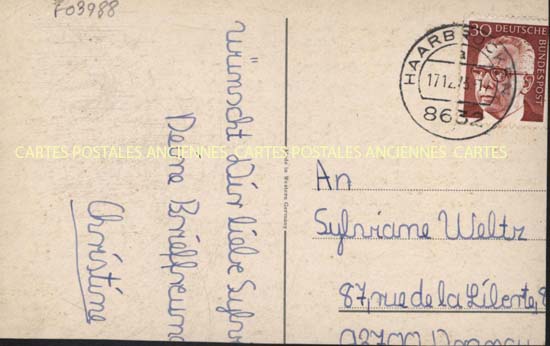 F03988
wünscht Dir liebe
Deine
Christine
HAARBRÜCKEN
a
17.12.
8632
30
DEUTSCHE
BUNDESPOST
CARTES POSTALES ANCIENNES CARTES POSTALES ANCIENNES CARTES
in Western Germany
An
Sylviane Weltz
87, rue de la Liberté, 8